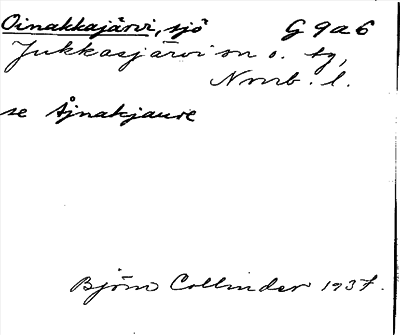 Oinakkajärvi, sjö G 9 a 6
Jukkasjärvi sn o. tg,
Nrrb. l.
se Åjnakjaure
Björn Collinder 1937.